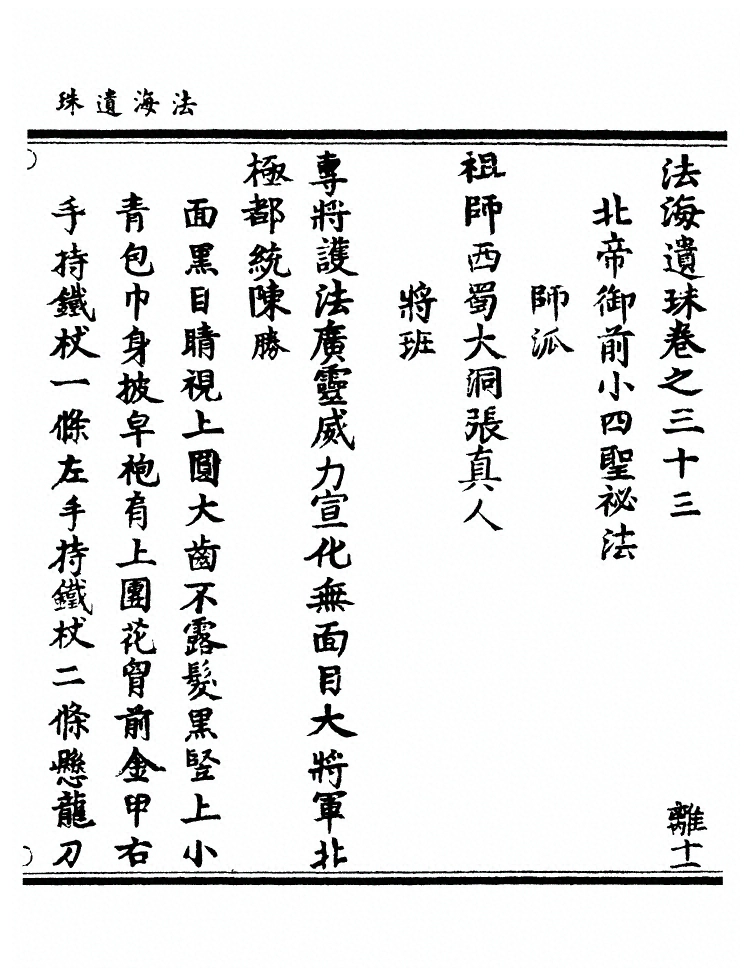 法海遺珠
法海遺珠卷之三十三
離十一
北帝御前小四聖祕法
師派
祖師西蜀大洞張真人
將班
專將護法廣靈威力宣化無面目大將軍北
極都統陳勝
面黑目睛視上圓大齒不露髮黑豎上小
青包巾身披皁袍有上團花胷前金甲右
手持鐵杖一條左手持鐵杖二條懸龍刀